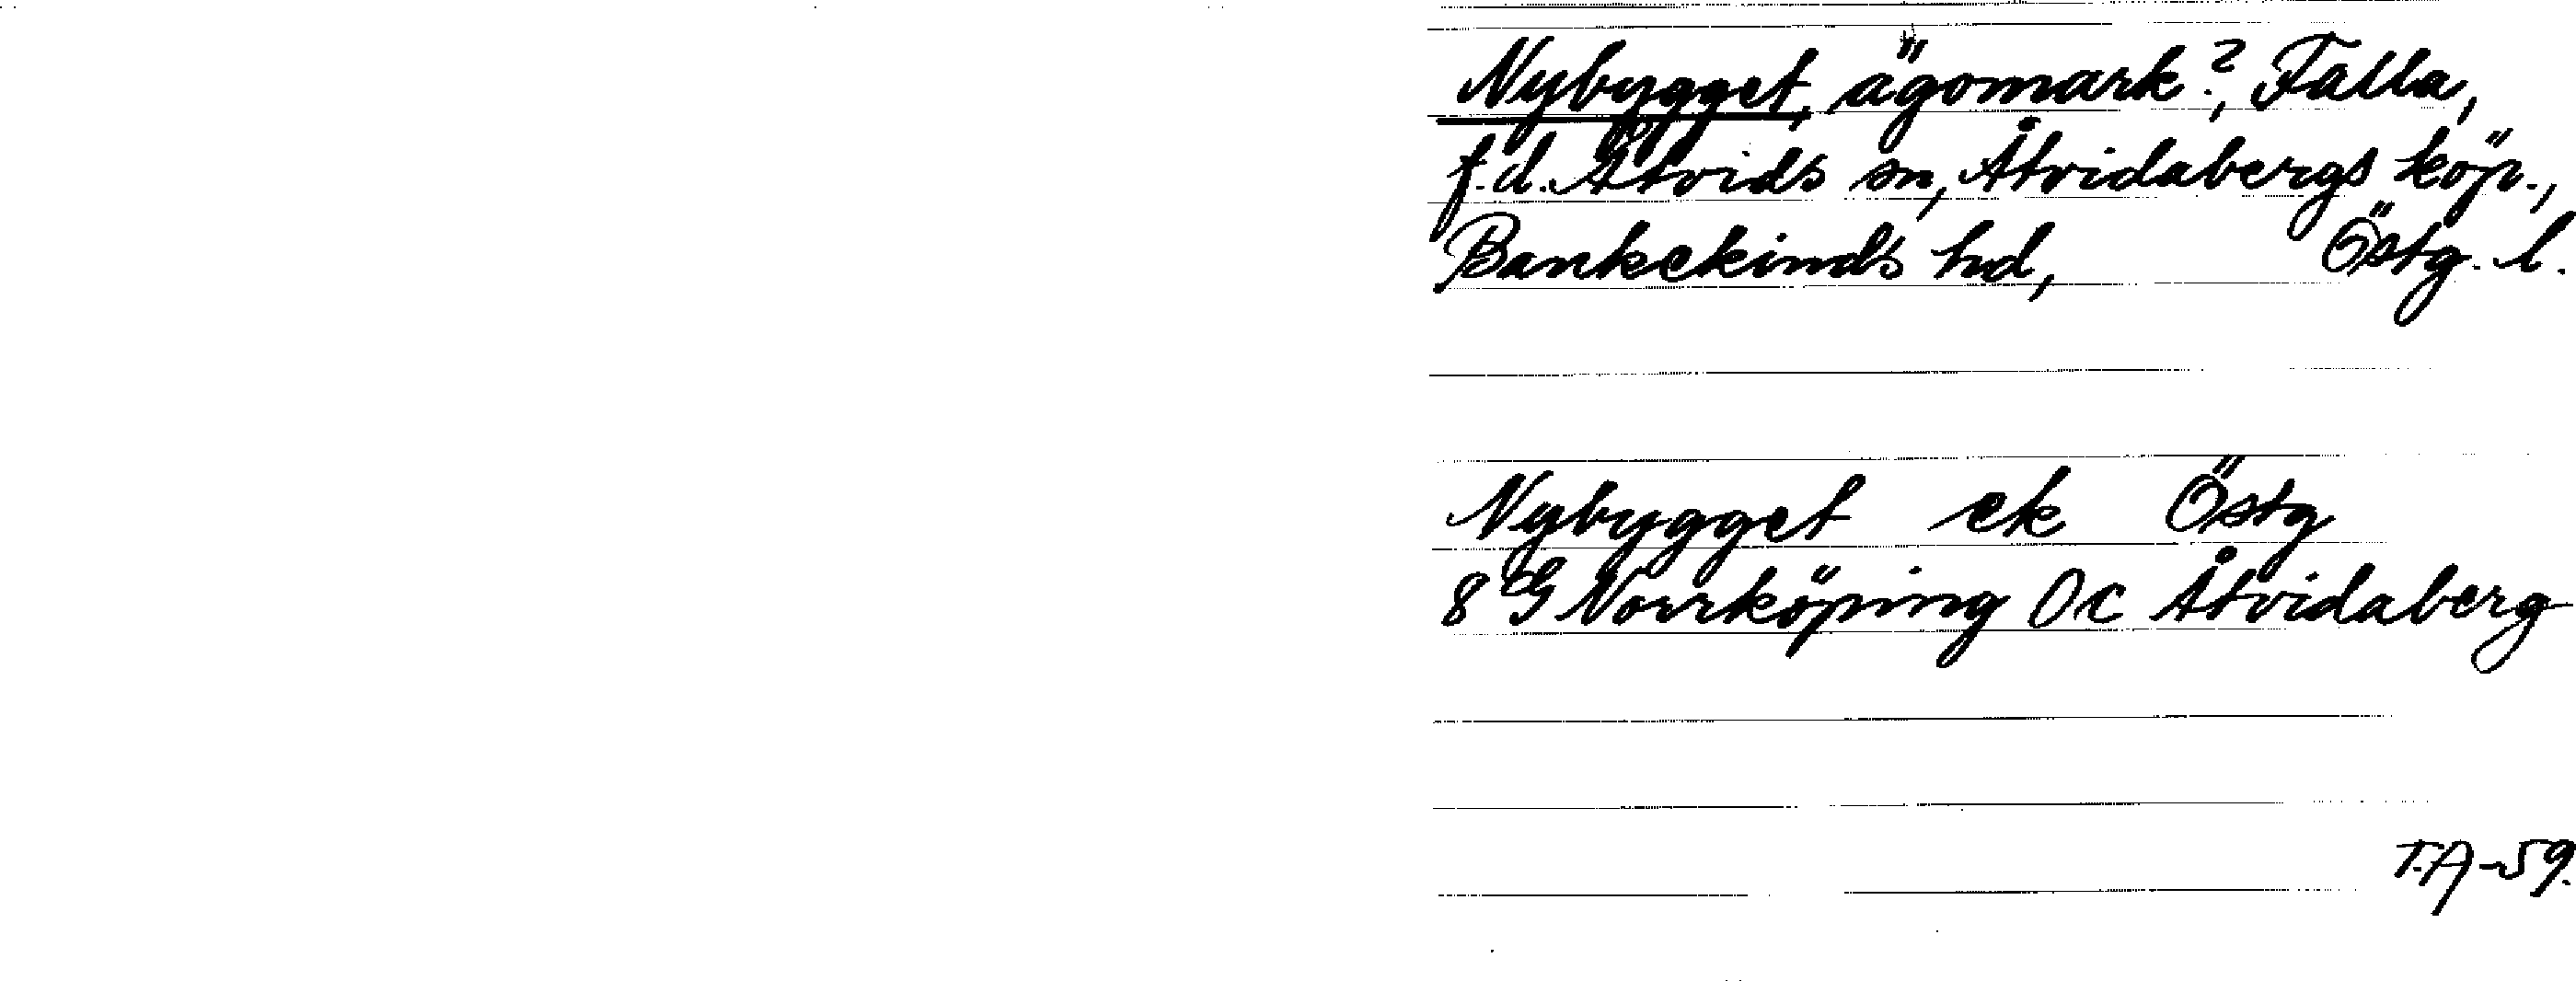 Nybygget, ägomark?, Falla,
f.d. Åtvids sn, Åtvidabergs köp.,
Bankekinds hd, Östg. l.
Nybygget ek Östg
8 G Norrköping Oc Åtvidaberg
T.A-59.